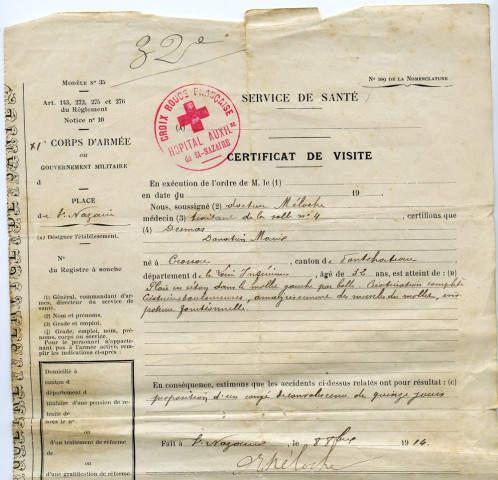 32e
MODÈLE N° 35
N° 109 DE LA NOMENCLATURE
Art. 143, 272, 275 et 276
du Règlement
Notice n° 10
CROIX ROUGE FRANÇAISE
HOPITAL AUXILre
de St-NAZAIRE
SERVICE DE SANTÉ
(a)
XI° CORPS D'ARMÉE
ou
GOUVERNEMENT MILITAIRE
d
CERTIFICAT DE VISITE
PLACE
de St Nazaire
(a) Désigner l'établissement.
N°
du Registre à souche
En exécution de l'ordre de M. le (1)
en date du 19
Nous, soussigné (2) docteur Méloche
médecin (3) traitant de la salle n° 4, certifions que
(4)
Donatien Marie
né à Crossac, canton de Pontchateau
département de la Loire Inférieure, âgé de 32 ans, est atteint de : (B)
Plaie en séton dans le mollet gauche par balle. Cicatrisation complète
amaigrissement du muscle du mollet,
fonctionnelle.
(1) Général, commandant d'ar-
mes, directeur du service de
santé.
(2) Nom et prénoms.
(3) Grade et emploi.
(4) Grade, emploi, nom, pré-
noms, corps ou service.
Pour le personnel n'apparte-
nant pas à l'armée active, rem-
plir les indications ci-après :
Domicilié à
canton d
département d
titulaire d'une pension de re-
traite de
sous le n°
ou
d'un traitement de réforme
de
ou
d'une gratification de réforme
En conséquence, estimons que les accidents ci-dessus relatés ont pour résultat : (c)
proposition d'un congé de convalescence de quinze jours
Fait à St Nazaire, le 8 8bre 1914.
Méloche